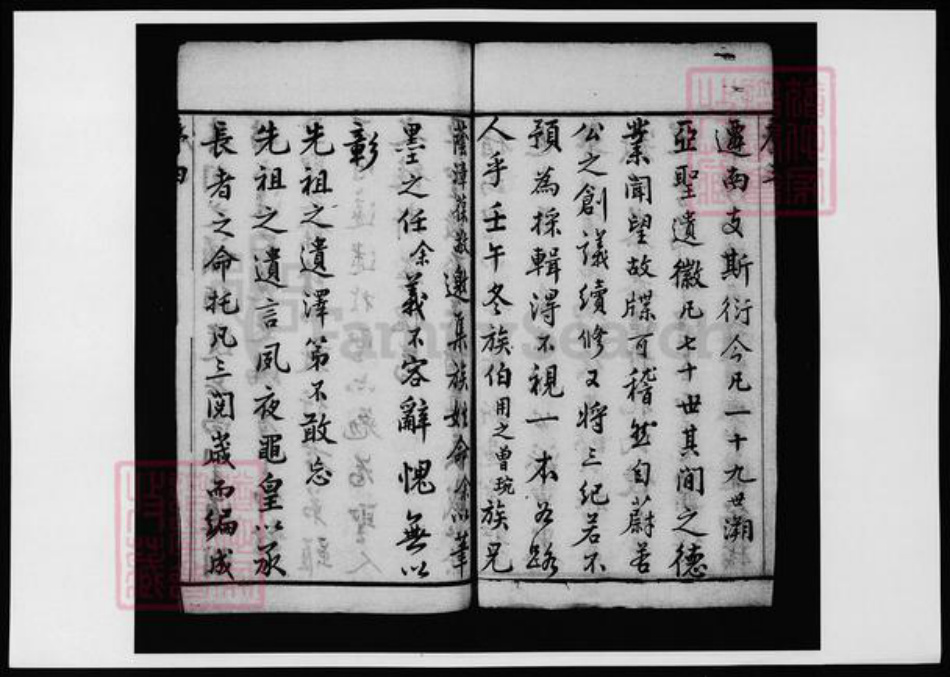 遷南支斯衍今凡一十九世溯
亞聖遺徽凡七十世其間之德
業聞望故牒可稽然自蔚若
公之創議續修又將三紀若不
預為採輯得不視一本為路
人乎壬午冬族伯用之曾琬族兄
蔭漳葆敬邀集族姓命余以筆
墨之任余義不容辭愧無以
彰
先祖之遺澤第不敢忘
先祖之遺言夙夜黽皇以承
長者之命托凡三閱歲而編成
FamilySearch